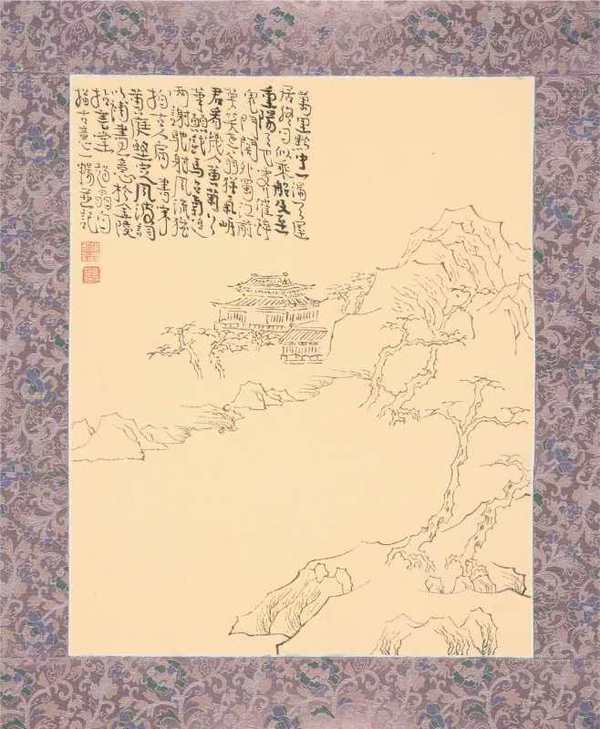 萬里黔中一漏天屋
居終日似乘船及至
重陽天也霽催醉
鬼門關外蜀江前
莫笑老翁猶氣岸
君看幾人黃菊上
華顛戲馬台南追
兩謝馳射風流猶
拍古人肩書宋
黃庭堅定風波詞
以補畫意於金陵
書堂
古意一揚並記